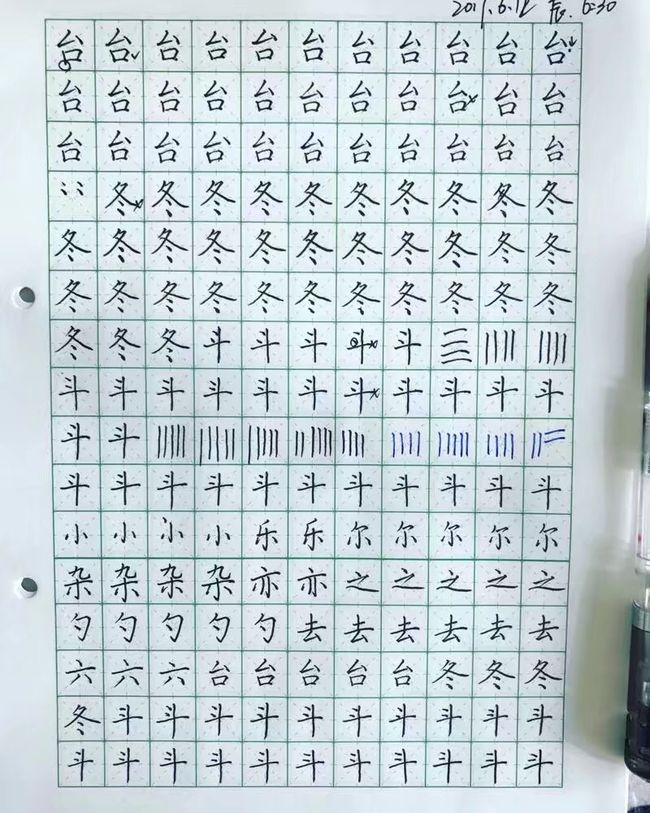 台台台台台台台台台台台
台台台台台台台台台台台
台台台台台台台台台台台
冬冬冬冬冬冬冬冬冬冬
冬冬冬冬冬冬冬冬冬冬冬
冬冬冬冬冬冬冬冬冬冬冬
冬冬冬斗斗斗斗斗
斗斗斗斗斗斗斗斗斗斗斗
斗斗
斗斗斗斗斗斗斗斗斗斗斗
小小小小乐乐尔尔尔尔尔
杂杂杂杂亦亦之之之之之
勺勺勺勺勺去去去去去去
六六六台台台台台冬冬冬
冬斗斗斗斗斗斗斗斗斗斗
斗斗斗斗斗斗斗斗斗斗斗